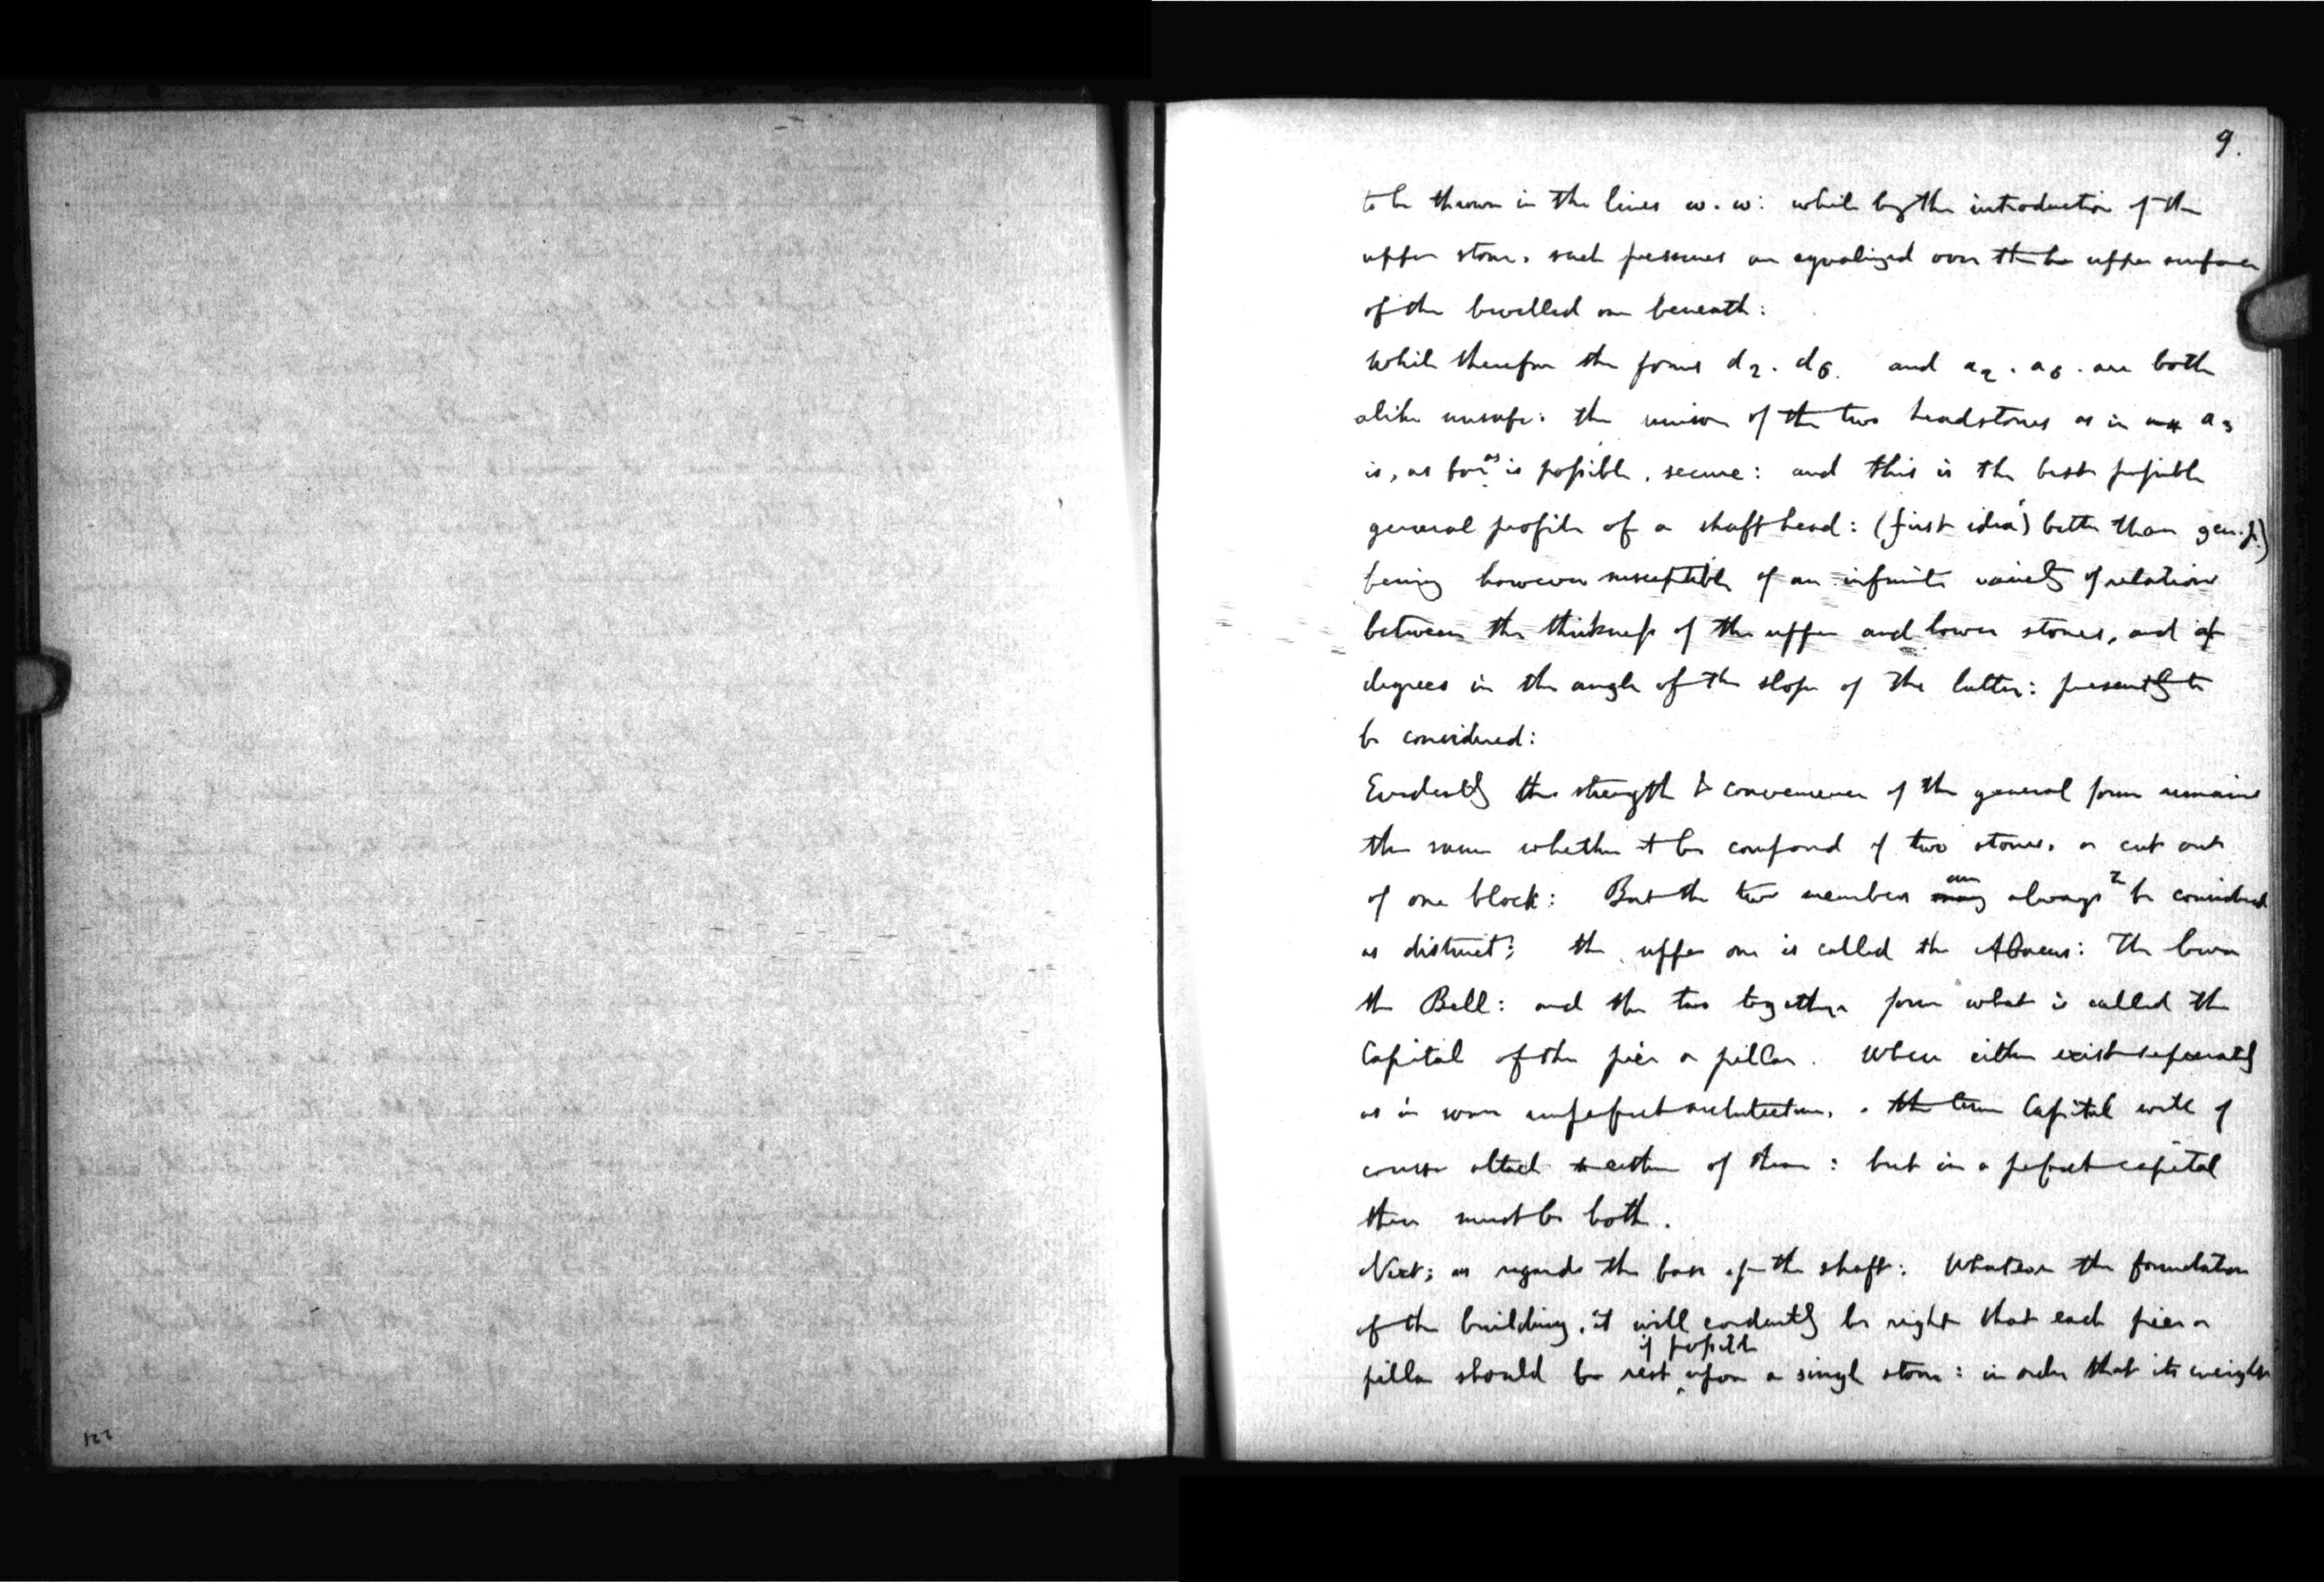 9.
to be thrown in the lines w. w: while by the introduction of the
upper stone, such pressures are equalized over the upper surface
of the bevelled one beneath:
While therefore the forms d2. d6. and a2. a6. are both
alike unsafe: the union of the two headstones as in a3
is, as far as is possible, secure: and this is the best possible
general profile of a shaft head: (first idea) better than gen. p.)
being however susceptible of an infinite variety of relation
between the thickness of the upper and lower stones, and of
degrees in the angle of the slope of the latter: presently to
be considered:
Evidently the strength & convenience of the general form remains
the same whether it be composed of two stones, or cut out
of one block: But the two members are always to be considered
as distinct; the upper one is called the Abacus: The lower
the Bell: and the two together form what is called the
Capital of the pier or pillar. When either exist separately
as in some imperfect architecture, the term Capital will of
course attach to either of them: but in a perfect capital
there must be both.
Next; as regards the base of the shaft: Whatever the foundation
of the building, it will evidently be right that each pier or
if possible
pillar should be rest upon a single stone: in order that its weight
122